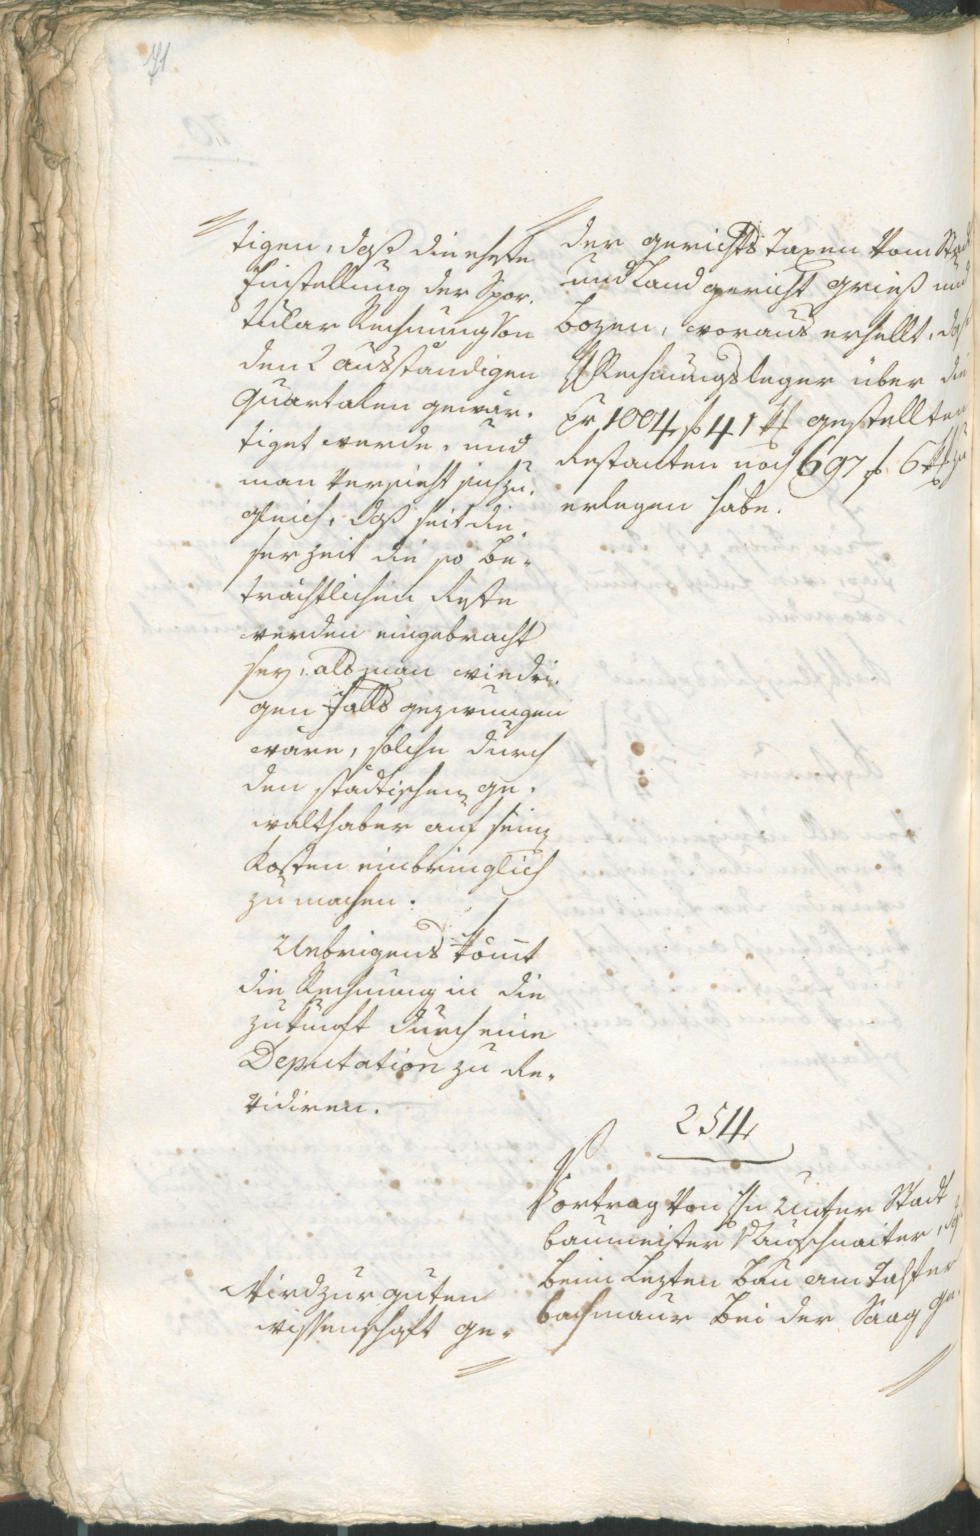 71
tigen, daß die ehste
Einstellung der Spor-
tular Rechnung von
den 2 ausständigen
Quartalen gewär-
tiget werde, und
man versieht sich zu-
gleich, daß seit die-
ser Zeit die so be-
trächtlichen Reste
werden eingebracht
seyn, als man wiedri-
gen Falls gezwungen
wäre, solche durch
den städtischen Ge-
walthaber auf seine
Kosten einbringlich
zu machen.
Uebrigens kömmt
die Rechnung in die
Zukunft durch eine
Deputation zu re-
vidiren.
Wird zur guten
wissenschaft ge-
der Gerichts Taxen vom Stadt
und Landgericht Grieß und
Bozen, woraus erhellt, daß
H Rechnungsleger über die
pr 1004 f 41 x gestellten
Restanten noch 697 f 6 x zu
erlegen habe.
254
Vortrag von Hn Unter Stadt
baumeister, daß
beim lezten Bau am Talfer
bachmaur bei der Saag ge-